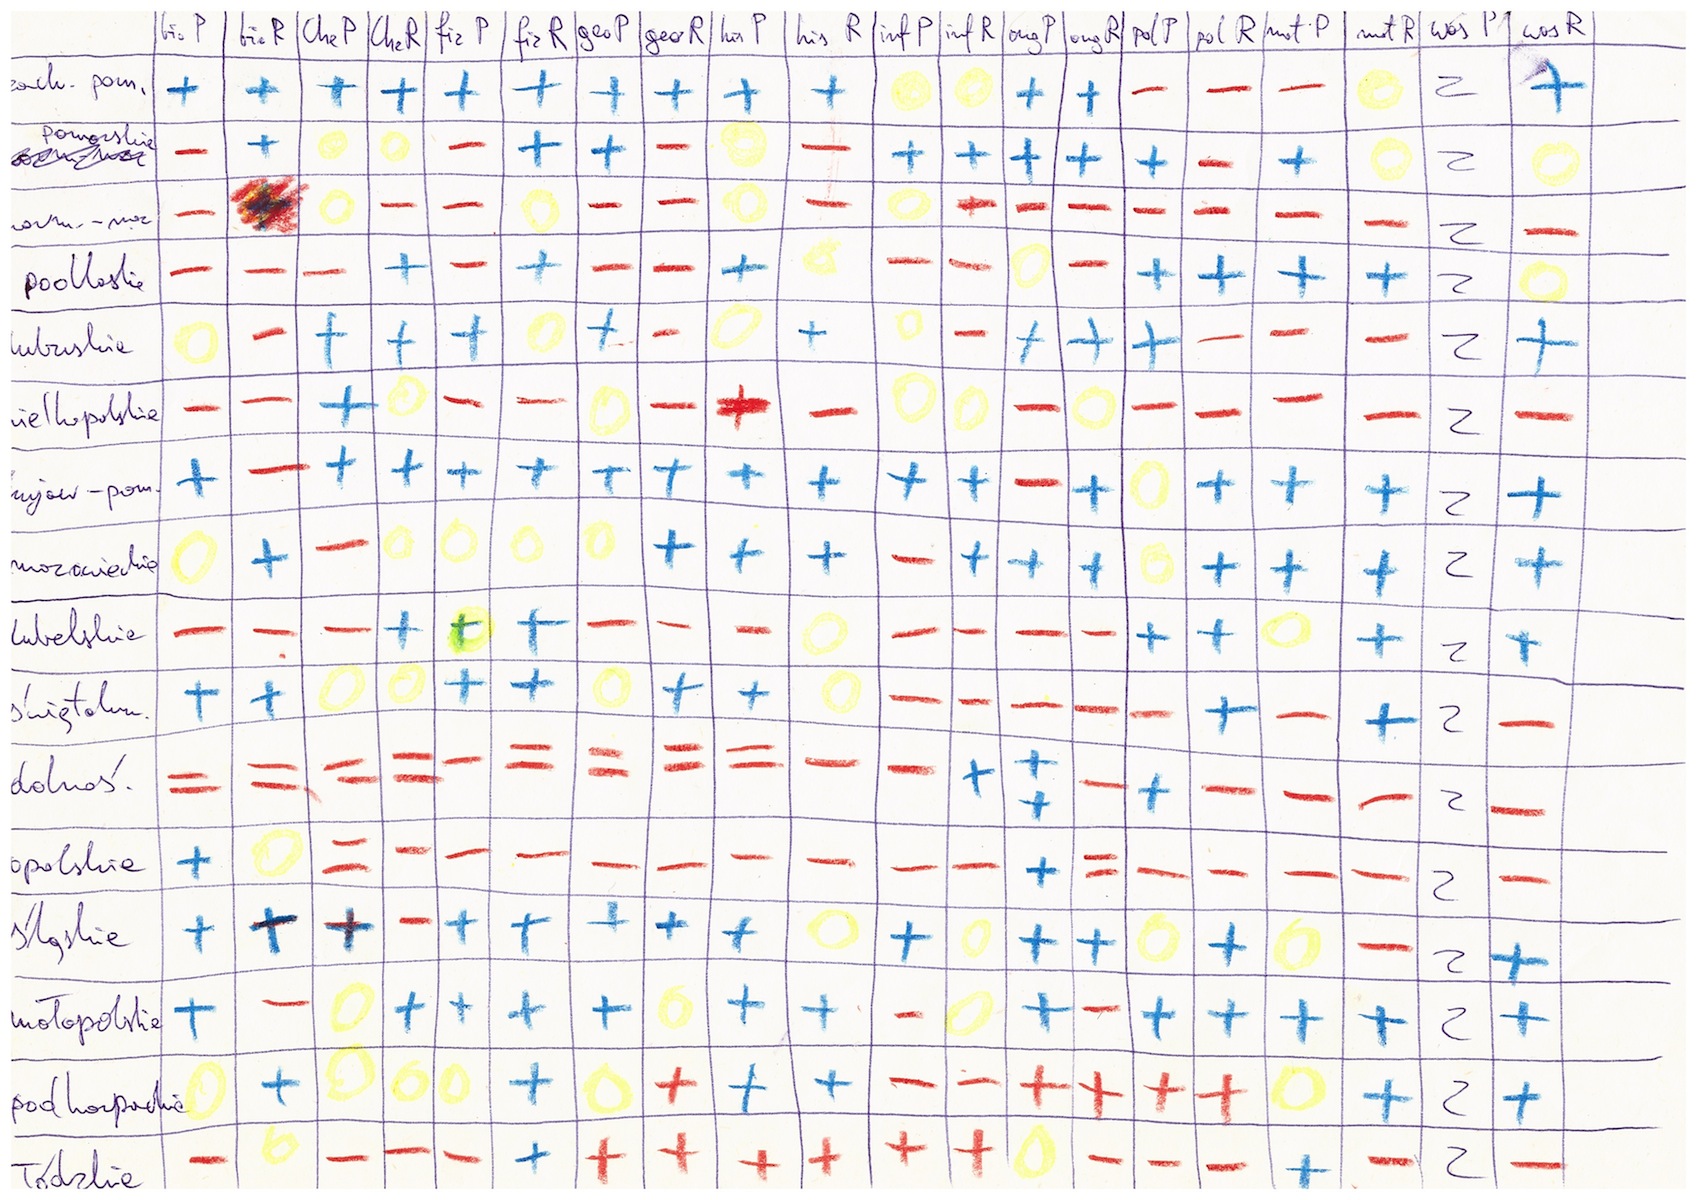 bio P bio R Che P Che R fiz P fiz R geo P geo R his P his R inf P inf R ang P ang R pol P pol R mat P mat R wos P wos R
zach. pom. + + + + + + + + + + O O + + - - - O 2 +
pomorskie - + O O - + + - O - + + + + + - + O 2 O
warm.-maz - O - - O - - O - O - - - - - - 2 -
podlaskie - - - + - + - - + O - - O - + + + + 2 O
lubuskie O - + + + O + - O + O - + + + - - - 2 +
wielkopolskie - - + O - - O - + - O O - O - - - - 2 -
kujaw-pom. + - + + + + + + + + + + - + O + + + 2 +
mazowieckie O + - O O O O + + + - + + + O + + + 2 +
lubelskie - - - + + + - - - O - - - - + + O + 2 +
świętokrz. + + O O + + O + + O - - - - - + - + 2 -
dolnoś. = = = = - = = = = - - + + + - + - - - 2 -
opolskie + O = = - - - - - - - - + = - - - - 2 -
śląskie + + + - + + + + + O + O + + O + O - 2 +
małopolskie + - O + + + + O + + - O + - + + + + 2 +
podkarpackie O + O O O + O + + + - - + + + + O + 2 +
łódzkie - O - - - + + + + + + + O - - - + - 2 -